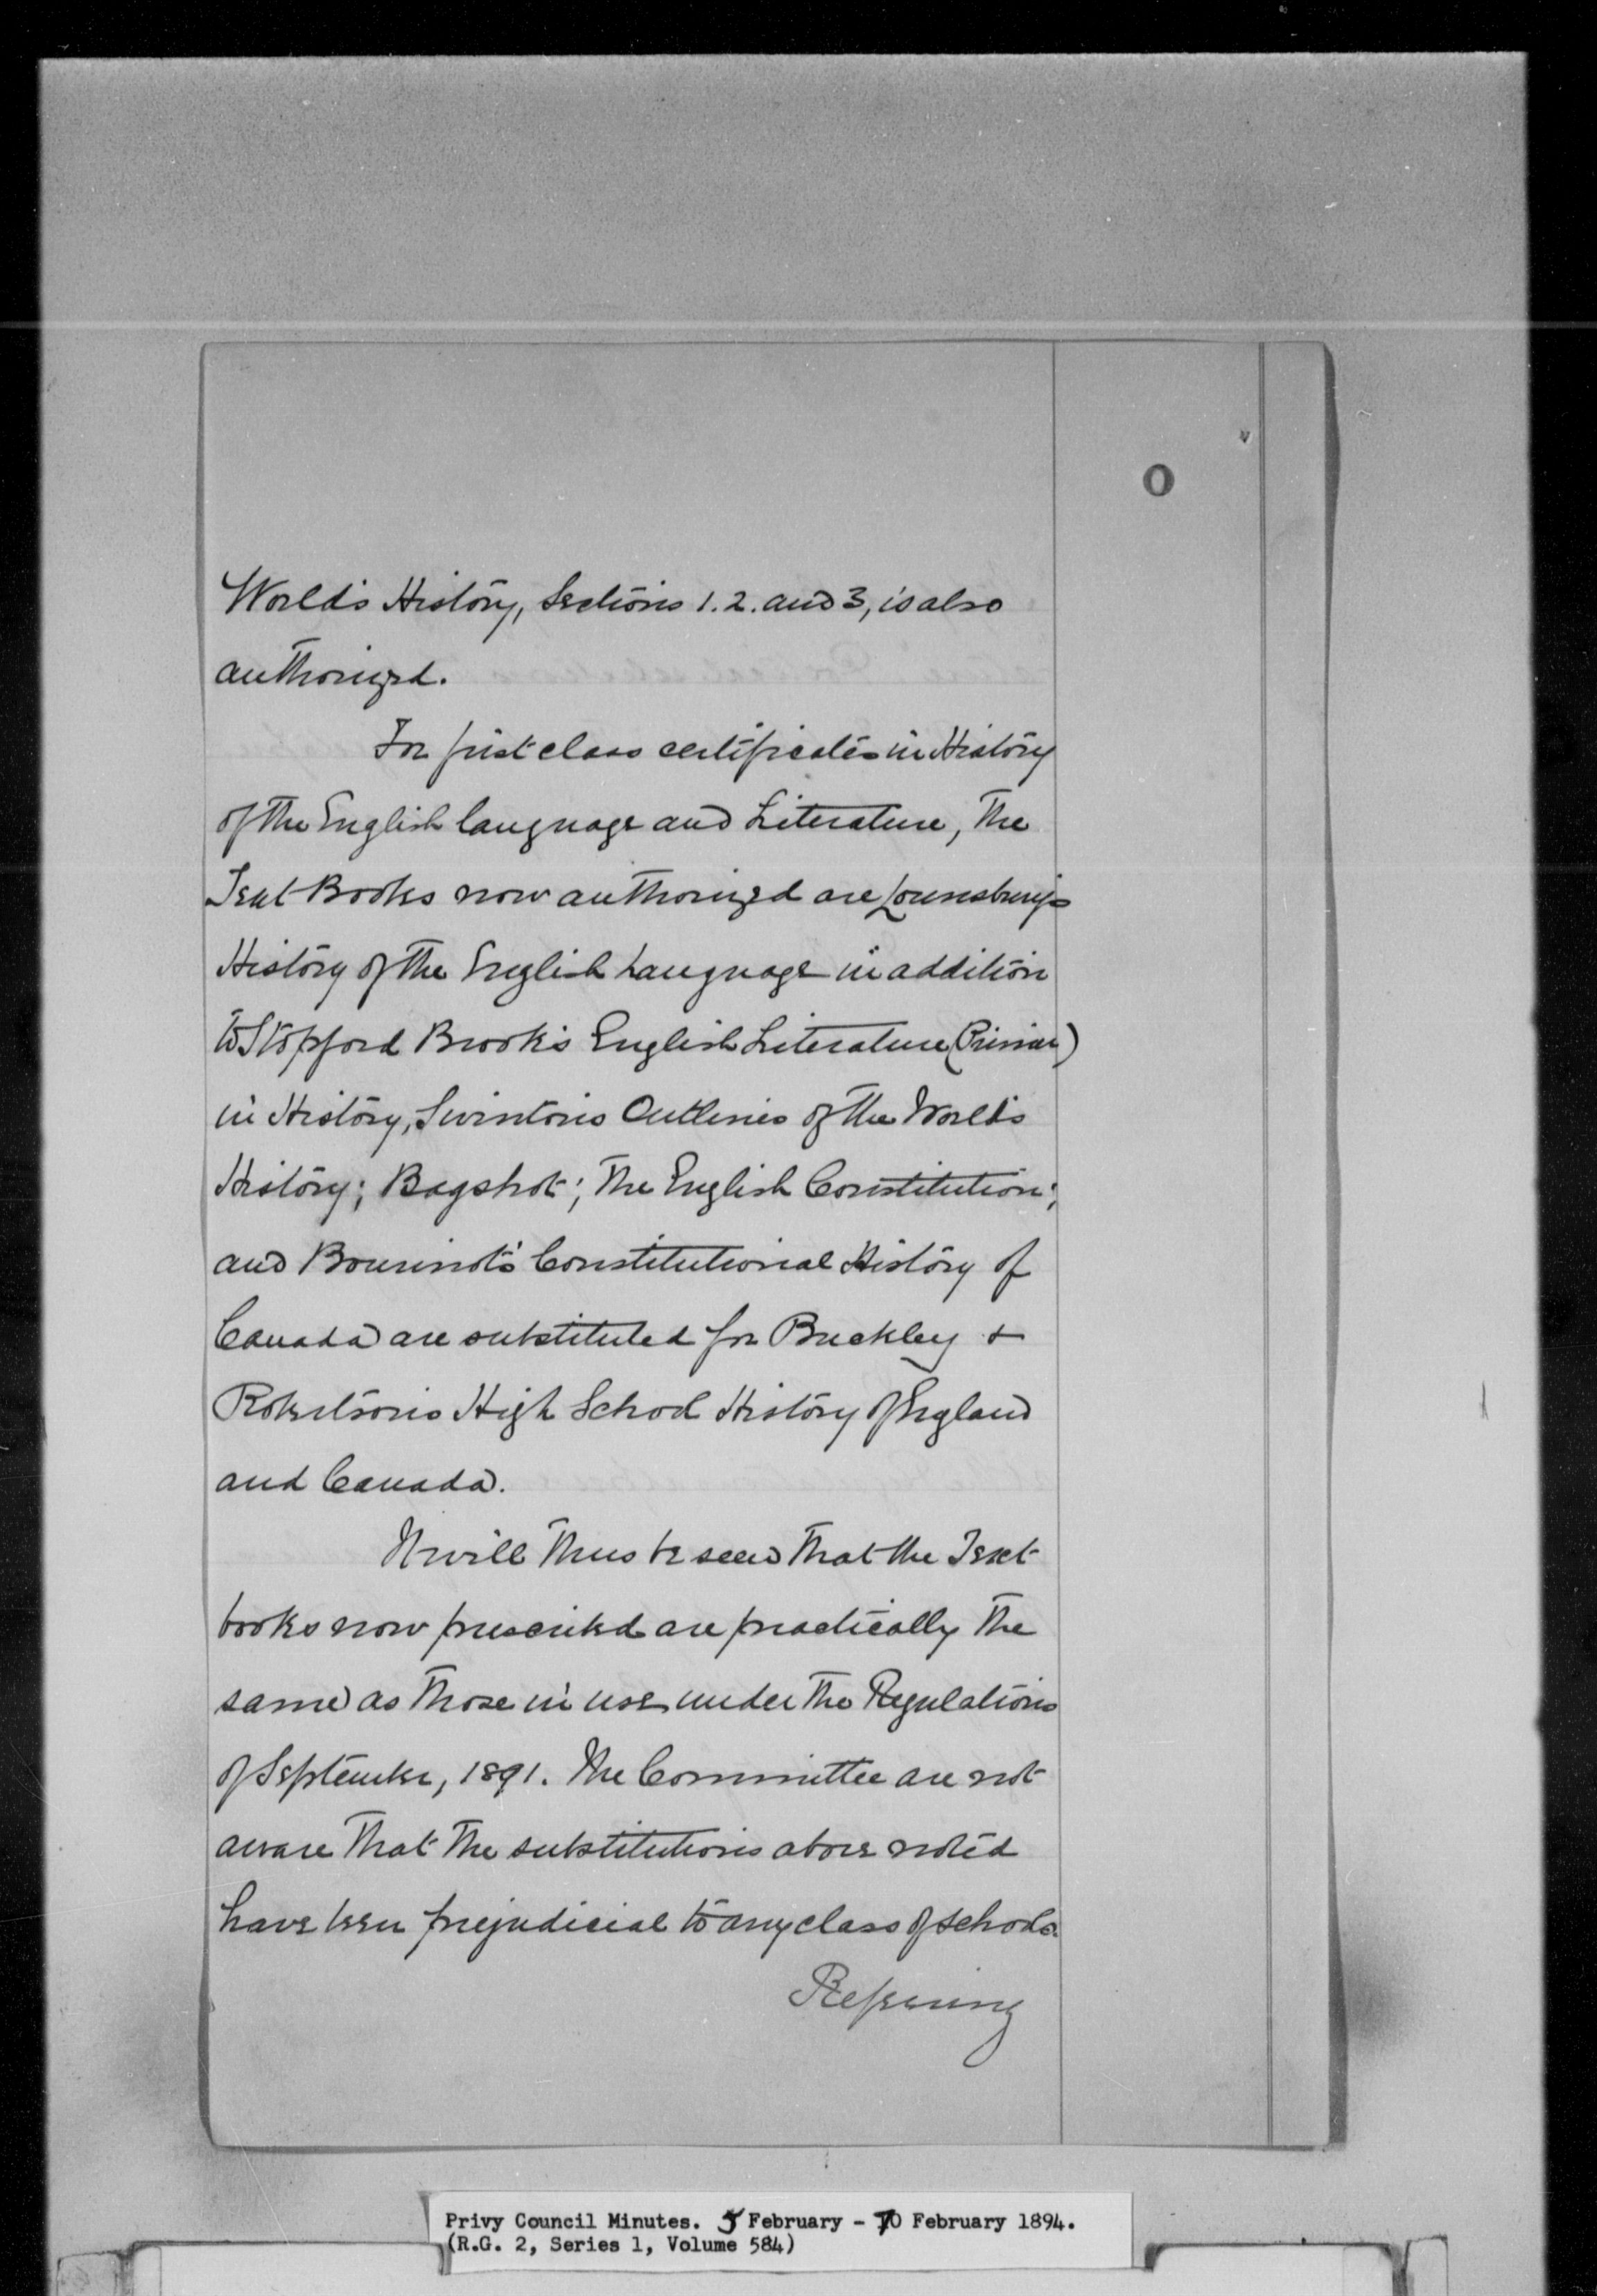 O
World's History, Sections 1. 2. and 3, is also
authorized.
For first class certificates in History
of the English language and Literature, the
Text Books now authorized are Lounsbury's
History of the English Language in addition
to Stopford Brook's English Literature (Primer)
in History, Swinton's Outlines of the World's
History; Bagshot; The English Constitution;
and Bourinot's Constitutional History of
Canada are substituted for Buckley &
Robertson's High School History of England
and Canada.
It will thus be seen that the Text
books now prescribed are practically the
same as those in use under the Regulations
of September, 1891. The Committee are not
aware that the substitutions above noted
have been prejudicial to any class of schools.
Referring
Privy Council Minutes. 5 February - 10 February 1894.
(R.G. 2, Series 1, Volume 584)